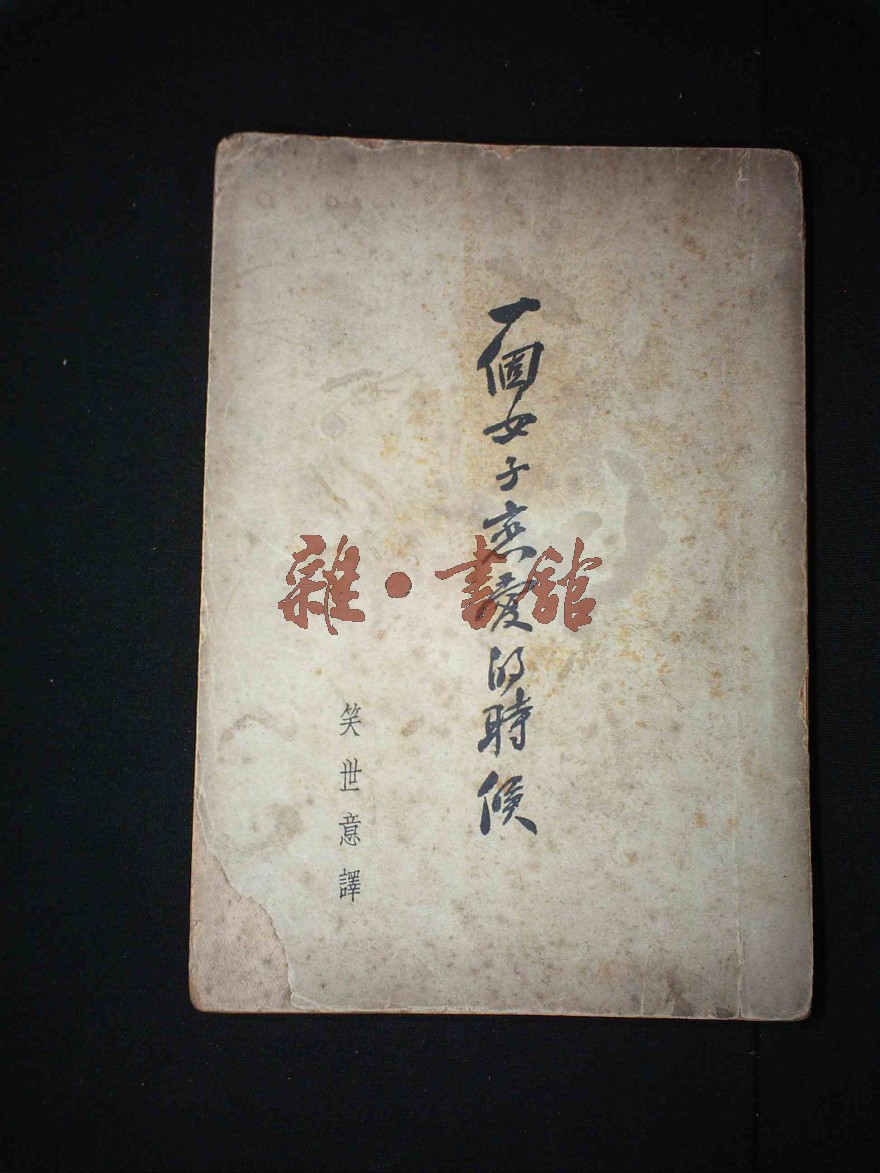 一個女子恋愛的時候
笑世意譯
雜·書館